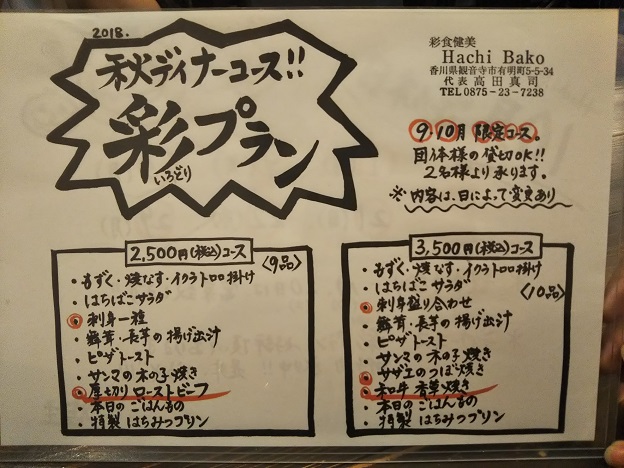 2018.
秋ディナーコース!!
彩プラン
いろどり
彩食健美
Hachi Bako
香川県観音寺市有明町5-5-34
代表 高田真司
TEL 0875-23-7238
9.10月 限定コース。
団体様の貸切OK!!
2名様より承ります。
※内容は、日によって変更あり
2,500円(税込)コース
〈9品〉
・もずく・焼なす・イクラトロロ掛け
・はちばこサラダ
・刺身一種
・舞茸・長芋の揚げ出汁
・ピザトースト
・サンマの木の子焼き
・厚切りローストビーフ
・本日のごはんもの
・特製はちみつプリン
3,500円(税込)コース
・もずく・焼なす・イクラトロロ掛け
・はちばこサラダ
〈10品〉
・刺身盛り合わせ
・舞茸・長芋の揚げ出汁
・ピザトースト
・サンマの木の子焼き
・サザエのつぼ焼き
・和牛 香草焼き
・本日のごはんもの
・特製はちみつプリン